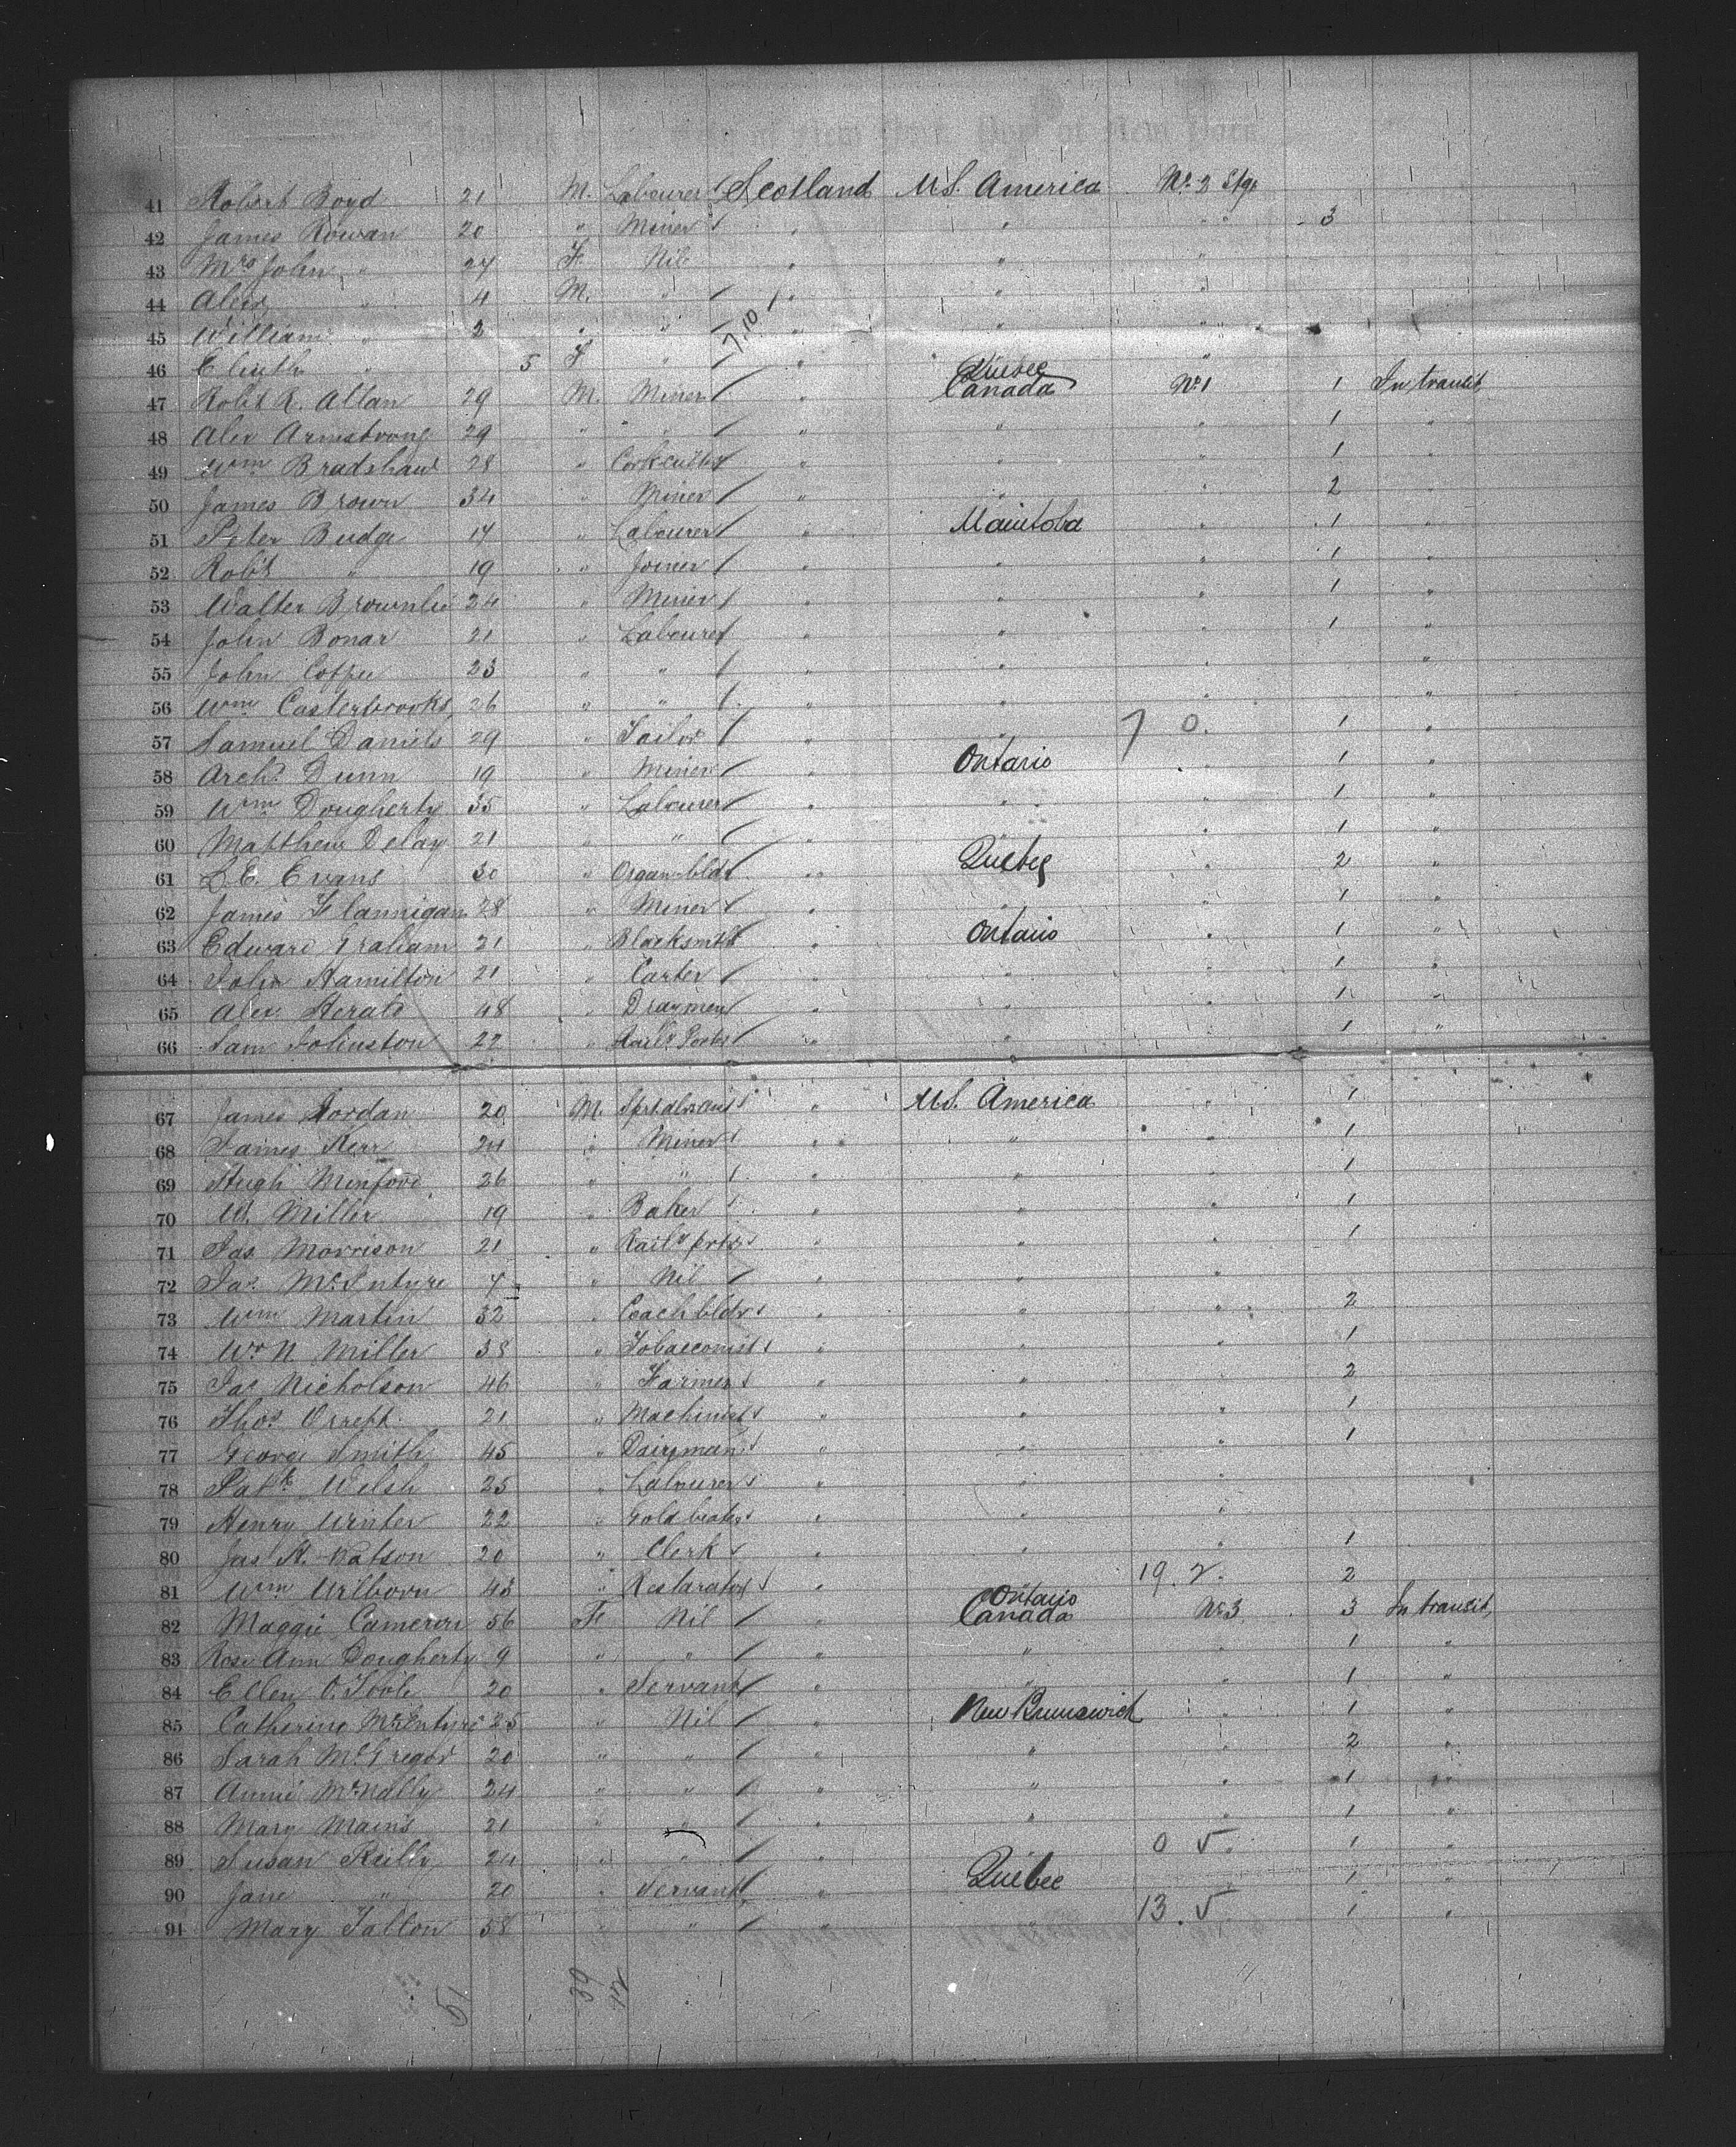 41 Robert Boyd 21 M. Labourer Scotland U.S. America No. 2 Stge
42 James Rowan 20 " Miner " " " 3
43 Mrs John " 24 F Nil " " "
44 Alex " 4 M. " " " "
45 William " 2 " " 7.10 " " "
46 " 5 F " " " "
47 Robt R. Allan 29 M. Miner " Quebec Canada No 1 1 In transit
48 Alex Armstrong 29 " " " " " 1 "
49 Wm Bradshaw 28 " Corkcutter " " " 1
50 James Brown 34 " Miner " " " 2
51 Peter Budge 17 " Labourer " Manitoba " 1 "
52 Robt " 19 " Joiner " " " 1 "
53 Walter Brownlie 24 " Miner " " " 1 "
54 John Bonar 21 " Labourer " " " 1 "
55 John 23 " " " " " "
56 Wm Casterbrooks 26 " " " " " "
57 Samuel Daniels 29 " " " 7 0. 1 "
58 Archd Dunn 19 " Miner " Ontario " 1 "
59 Wm Dougherty 35 " Labourer " " " 1 "
60 Matthew Delay 21 " " " " 1 "
61 Evans 30 " Organ-bldr " Quebec " 2 "
62 James Flannigan 28 " Miner " " " 1 "
63 Edward Graham 21 " Blacksmith " Ontario " 1 "
64 John Hamilton 21 " Carter " " " 1 "
65 Alex Herald 48 " Draymen " " " 1 "
66 Sam Johnston 22 " " " " 1 "
67 James Jordan 20 M. " U.S. America " 1
68 James Kerr 24 " Miner " " " 1
69 Hugh Minford 26 " " " " " 1
70 W. Miller 19 " Baker " " " 1
71 Jas Morrison 21 " " " " 1
72 Jas McIntyre 7 " Nil " " "
73 Wm Martin 32 " Coachbldr " " " 2
74 Wm N. Miller 38 " Tobacconist " " 1
75 Jas Nicholson 46 " Farmer " " " 2
76 Thos 21 " Machinist " " " 1
77 George Smith 45 " Dairyman " " " 1
78 Patk Welsh 25 " Labourer " " "
79 Henry Winter 22 " Gold beater " " "
80 Jas H. Watson 20 " Clerk " " " 1
81 Wm Wilborn 43 " " 19.2. 2
82 Maggie Cameron 56 F Nil " Ontario Canada No 3 3 In transit
83 Rose Ann Dougherty 9 " " " " " 1 "
84 Ellen O'Toole 20 " Servant " " " 1 "
85 Catherine McEntire 25 " Nil " New Brunswick " 1 "
86 Sarah McGregor 20 " " " " " 2 "
87 Annie McNally 24 " " " " " 1 "
88 Mary Mains 21 " " " " " 1 "
89 Susan Reilly 24 " " " 0 5. 1 "
90 Jane " 20 " Servant " Quebec 1 "
91 Mary Fallon 58 " " " " 13.5 1 "
51 39 12